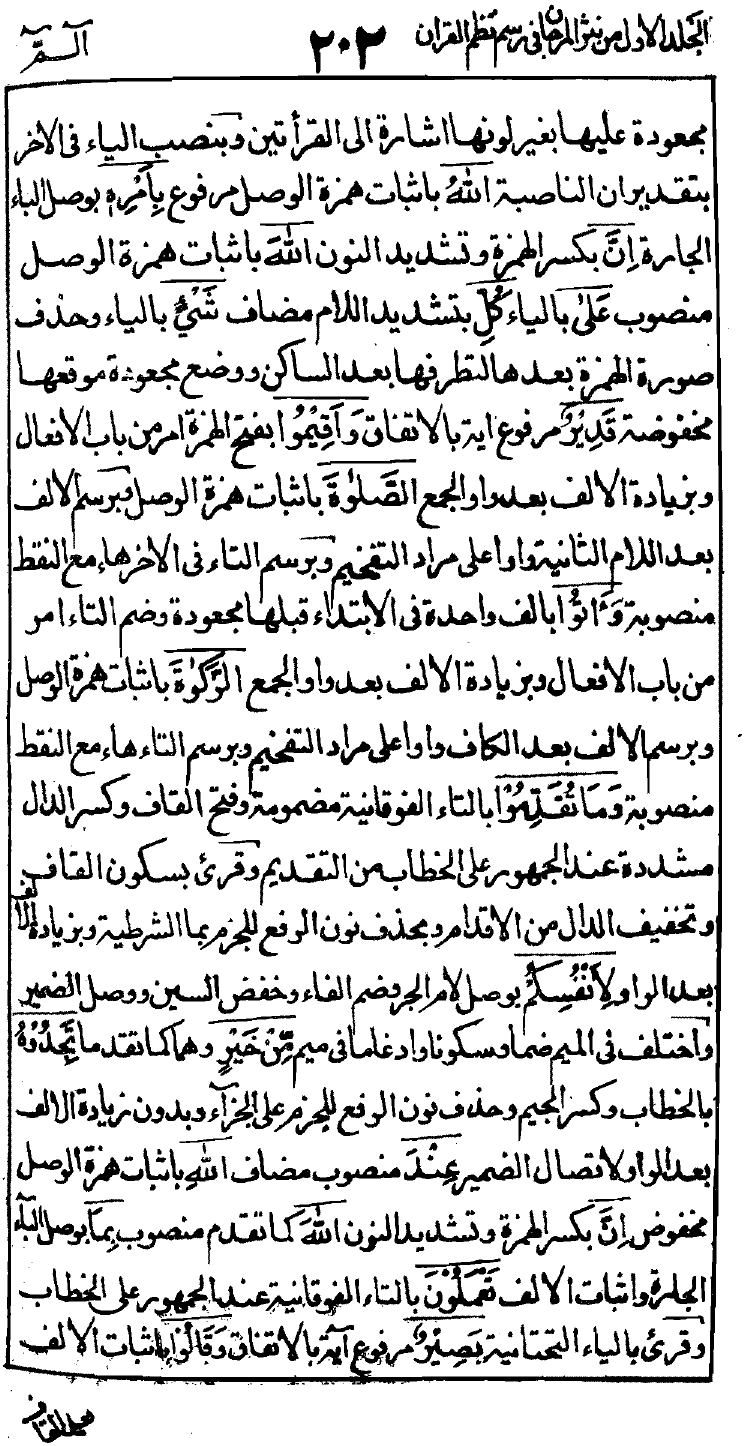 المجلد الاول من نثر المرجان فى رسم نظم القران ٢٠٢ الٓـمّٓ
مجعودة عليها بغير لونها اشارة الى القرأتين وبنصب الياء فى الاخر
بتقدير ان الناصبة اللهُ باثبات همزة الوصل مرفوع بِاَمْرِهٖ بوصل الباء
الجارة اِنَّ بكسر الهمزة وتشديد النون اللهَ باثبات همزة الوصل
منصوب عَلٰى بالياء كُلِّ بتشديد اللام مضاف شَىْءٍ بالياء وحذف
صورة الهمزة بعدها لتطرفها بعد الساكن ووضع مجعودة موقعها
مخفوضة قَدِيْرٌ مرفوع اية بالاتفاق وَاَقِيْمُوا بفتح الهمزة امر من باب الافعال
وبزيادة الالف بعد واو الجمع الصَّلٰوةَ باثبات همزة الوصل وبرسم الالف
بعد اللام الثانية واوا على مراد التفخيم وبرسم التاء فى الاخر هاء مع النقط
منصوبة وَاٰتُوا بالف واحدة فى الابتداء قبلها مجعودة وضم التاء امر
من باب الافعال وبزيادة الالف بعد واو الجمع الزَّكٰوةَ باثبات همزة الوصل
وبرسم الالف بعد الكاف واوا على مراد التفخيم وبرسم التاء هاء مع النقط
منصوبة وَمَا تُقَدِّمُوْا بالتاء الفوقانية مضمومة وفتح القاف وكسر الدال
مشددة عند الجمهور على الخطاب من التقديم وقرئ بسكون القاف
وتخفيف الدال من الاقدام وبحذف نون الرفع للجزم بما الشرطية وبزيادة الالف
بعد الواو لِاَنْفُسِكُمْ بوصل لام الجر وضم الفاء وخفض السين ووصل الضمير
واختلف فى الميم ضما وسكونا وادغاما فى ميم مِّنْ خَيْرٍ وهما كما تقدما تَجِدُوْهُ
بالخطاب وكسر الجيم وحذف نون الرفع للجزم على الجزآء وبدون زيادة الالف
بعد الواو لاتصال الضمير عِنْدَ منصوب مضاف اللهِ باثبات همزة الوصل
مخفوض اِنَّ بكسر الهمزة وتشديد النون اللهَ كما تقدم منصوب بِمَا بوصل البآء
الجارة واثبات الالف تَعْمَلُوْنَ بالتاء الفوقانية عند الجمهور على الخطاب
وقرئ بالياء التحتانية بَصِيْرٌ مرفوع اٰية بالاتفاق وَقَالُوْا باثبات الالف
بعد القاف